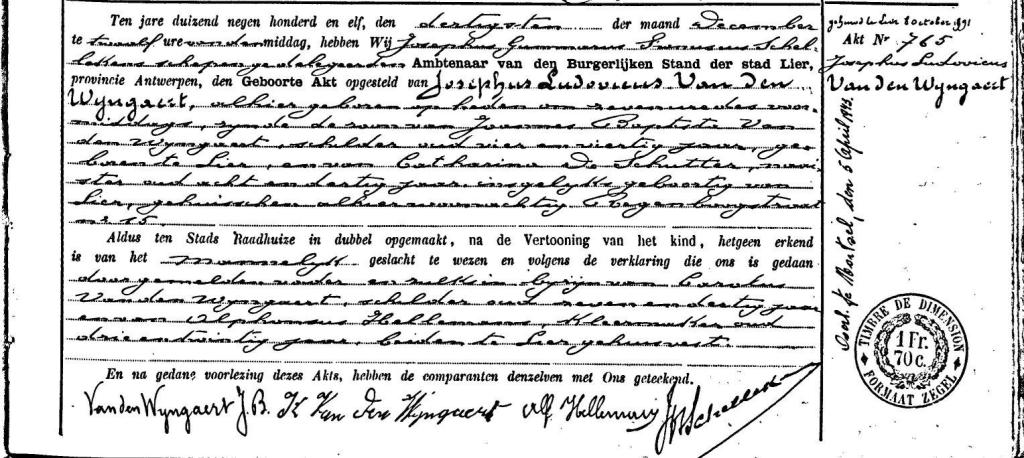 Ten jare duizend negen honderd en elf, den dertigsten der maand December
te twaalf ure van den middag, hebben Wij Josephus Gummarus Schel-
lekens schepen gedelegeerden Ambtenaar van den Burgerlijken Stand der stad Lier,
provincie Antwerpen, den Geboorte Akt opgesteld van Josephus Ludovicus Van den
Wyngaert, alhier geboren op heden om zeven ure des voor-
middags, zynde de zoon van Joannes Baptista Van
den Wyngaert, schilder oud vier en viertig jaar, ge-
boren te Lier, en van Catharina De Schutter, naai-
ster oud acht en dertig jaar, insgelyks geboortig van
Lier, gehuisschen alhier woonachtig straat
nr 15
Aldus ten Stads Raadhuize in dubbel opgemaakt, na de Vertooning van het kind, hetgeen erkend
is van het mannelyk geslacht te wezen en volgens de verklaring die ons is gedaan
door gemelden vader en zulks in byzyn van Carolus
Van den Wyngaert, schilder oud zeven en dertig jaar
en van Alphonsus Hellemans, kleermaker oud
drie en twintig jaar, beiden te Lier gehuisvest.
En na gedane voorlezing dezes Akts, hebben de comparanten denzelven met Ons geteekend.
Van den Wyngaert J. B. K Van den Wijngaert Alf Hellemans
Lier 8 October 1891
Akt Nr 765
Josephus Ludovicus
Van den Wyngaert
Mortsel, den 5 April
TIMBRE DE DIMENSION
1 Fr.
70 c.
FORMAAT ZEGEL